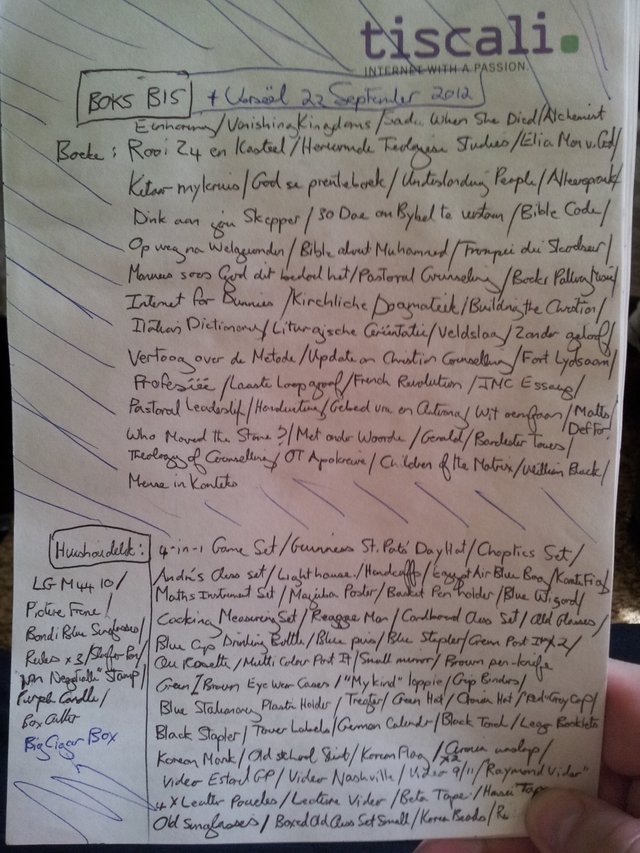 tiscali.
INTERNET WITH A PASSION.
BOKS B15 + Verseël 22 September 2012
Eenhoorn / Vanishing Kingdoms / Sadu When She Died / Alchemist
Boeke: Rooi Z4 en Kasteel / Hervormde Teologiese Studies / Elia Man v. God /
Ketaar my kruis / God se prenteboek / Understanding People / Alleenspraak /
Dink aan jou Skepper / 30 Dae om Bybel te verstaan / Bible Code /
Op weg na Welgevonden / Bible about Muhammed / Trompei die
Mannes soos God dit bedoel het / Pastoral Counseling / Boeke
Internet for Dummies / Kirchliche Dogmatiek / Building the Christian /
Italian Dictionary / Liturgische Oriëntatie / Veldslag / Zonder geloof /
Vertoog over de Metode / Update on Christian Counselling / Fort Lydsaam /
Profesiëe / Laaste Loopgraaf / French Revolution / JMC Essays /
Pastoral Leadership / / Gebed van en / Wit / Malta /
Def For.
Who Moved the Stone? / Met ander Woorde / Gerald / Barchester Towers /
Theology of Counselling / OT Apokriewe / Children of the Matrix / William Black /
Mense in Konteks
Huishoudelik:
4-in-1 Game Set / Guinness St. Pats Day Hat / Choptics Set /
André's Chess set / Lighthouse / Handcuffs / Egypt Air Blue Bag /
Maths Instrument Set / Magician Poster / Basket Pen holder / Blue Wizard /
Cooking Measuring Set / Reggae Man / Cardboard Chess Set / Old Glasses /
Blue Cap Drinking Bottle / Blue pins / Blue Stapler / Green Post It x 2 /
Rosette / Multi Colour Post It / Small mirror / Brown pen-knife
Green / Brown Eye Wear Cases / "My kind" lappie / Grip Binders /
Blue Stationary Plastic Holder / Treater / Green Hat / Hat / "Red-Gray Cap" /
Black Stapler / Tower Labels / German Calendar / Black Torch / Large Booklets
Korean Monk / Old School Shirt / Korean Flag x2 /
Video Estoril GP / Video Nashville / Video 9/11 / "Raymond Video"
4 x Leather Pouches / Lecture Video / Beta Tape /
Old Sunglasses / Boxed Old Chess Set Small / Korea Beads /
LG M4410 /
Picture Frame /
Bondi Blue Sunglasses /
Rules x 3 /
Stamp /
Purple Candle /
Box Cutter
Big Cigar Box